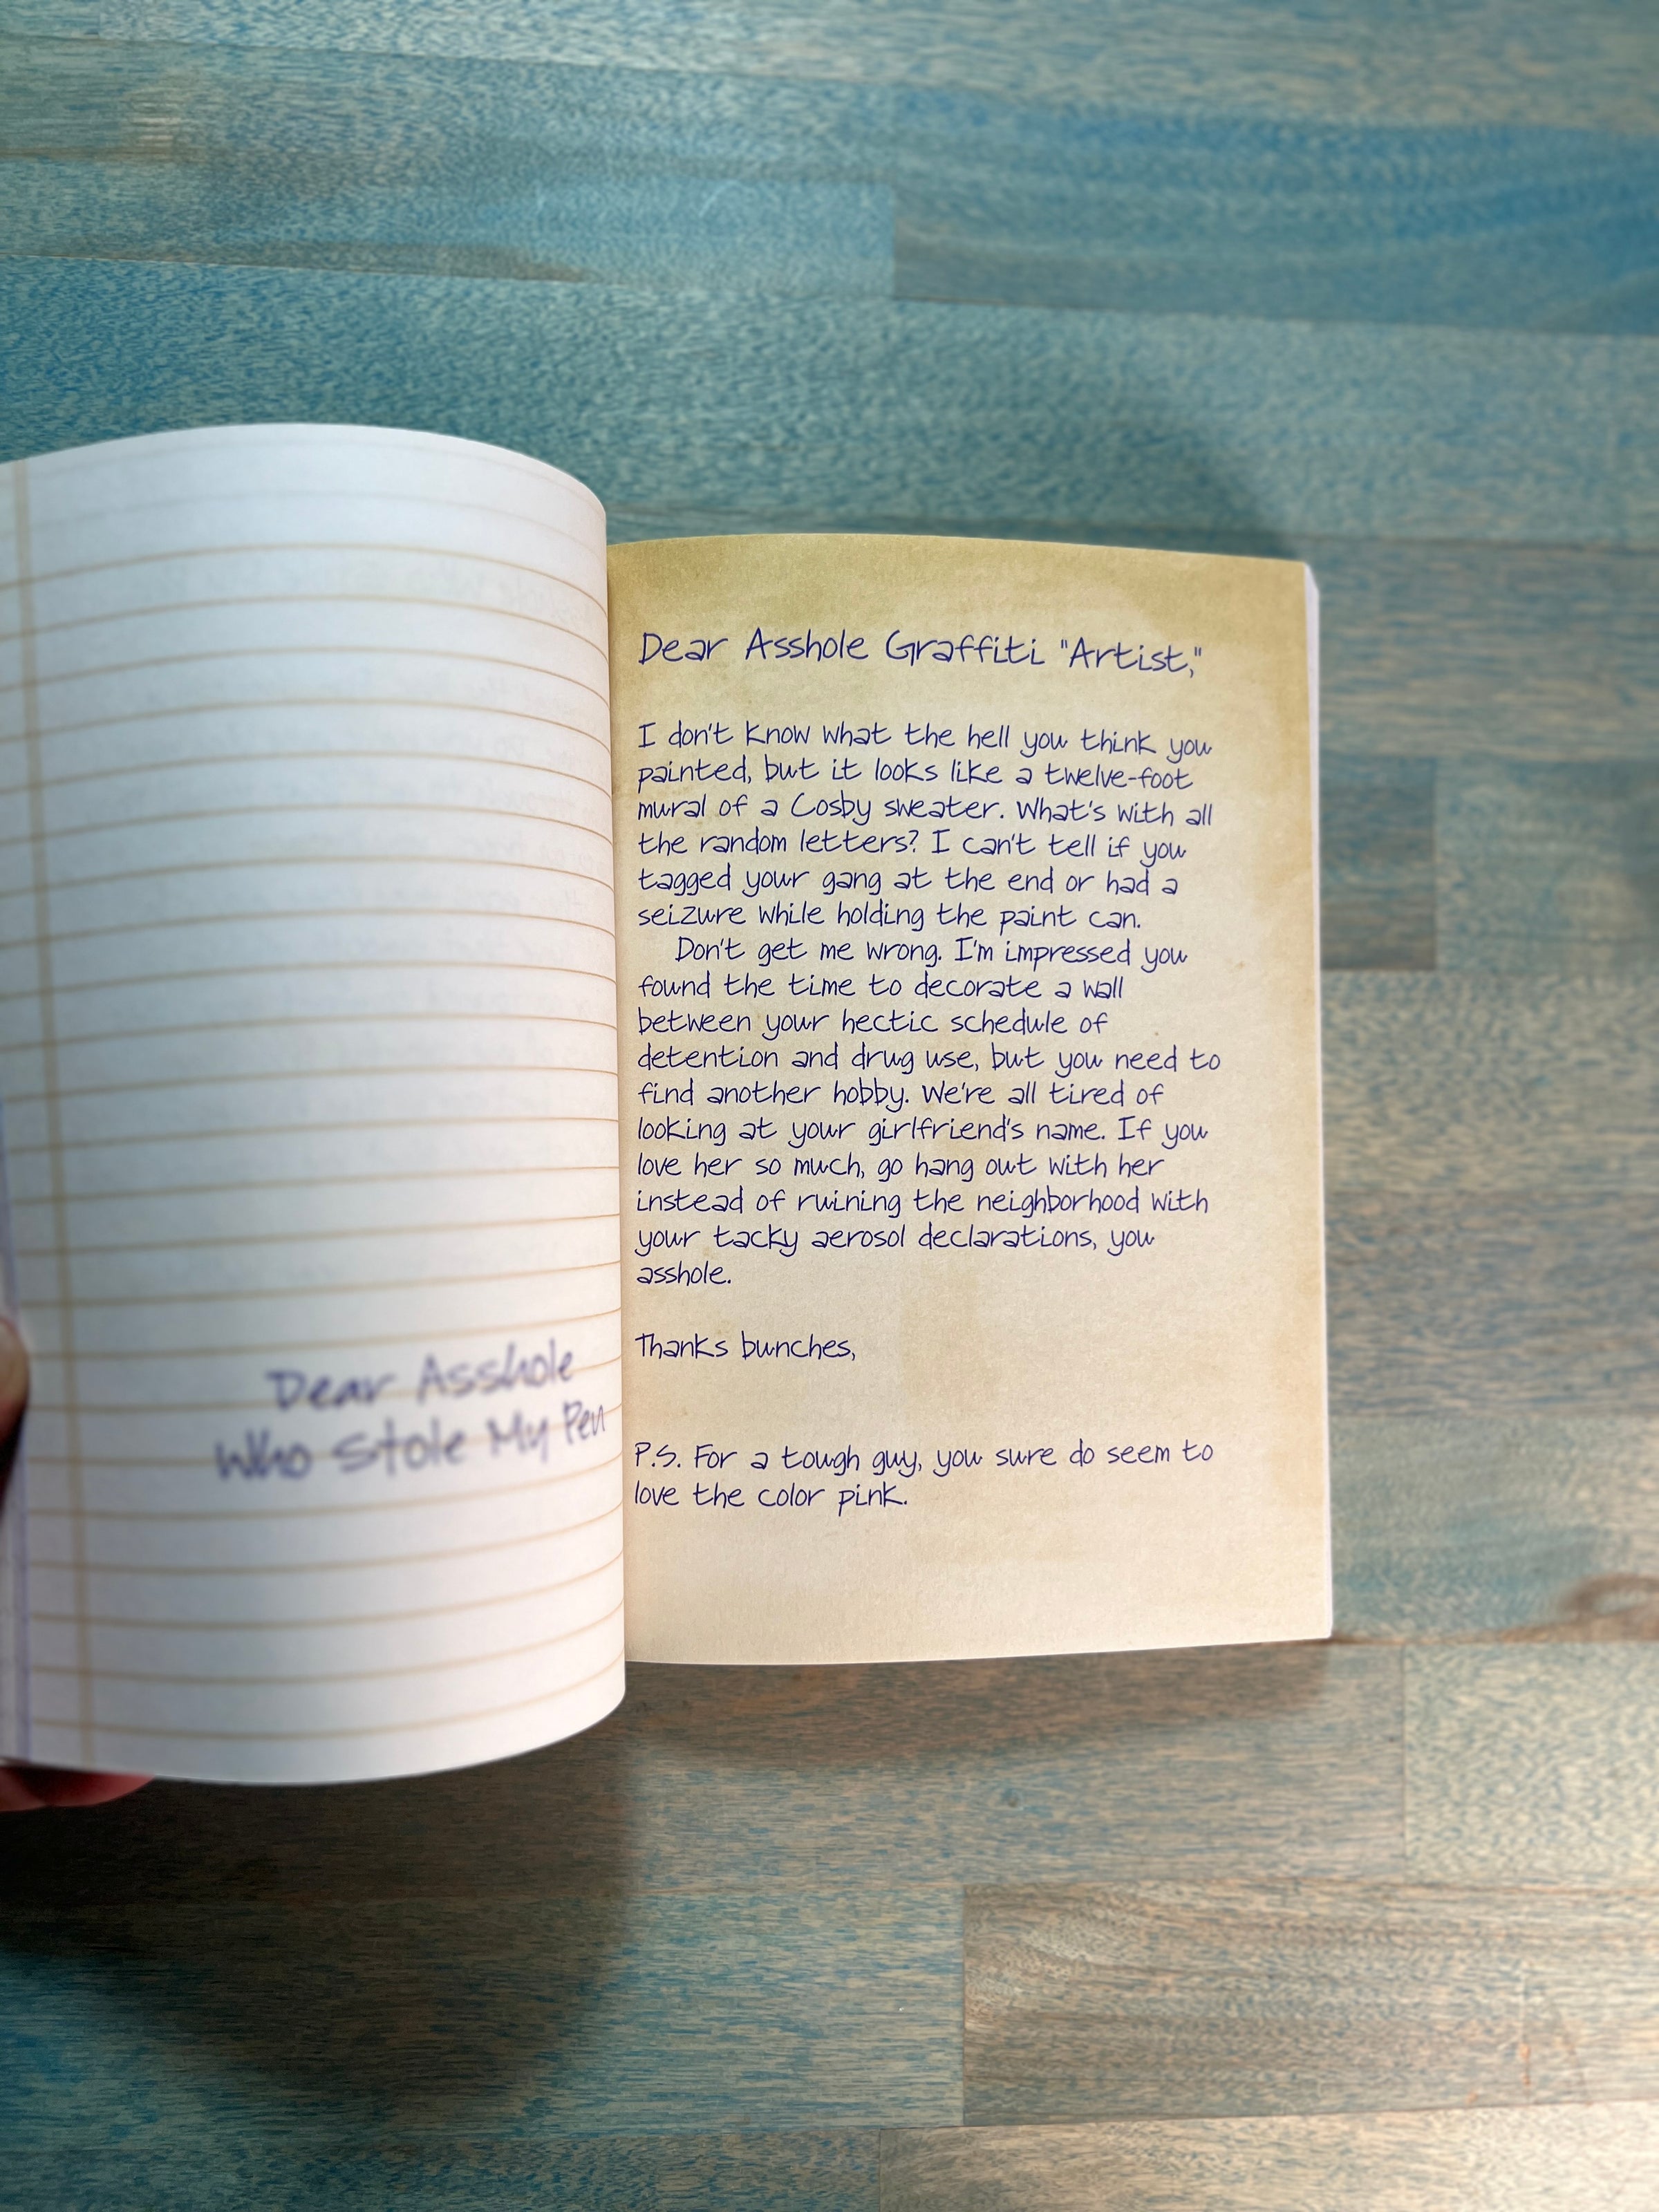 Dear Asshole
Who Stole My Pen
Dear Asshole Graffiti "Artist,"
I don't know what the hell you think you
painted, but it looks like a twelve-foot
mural of a Cosby sweater. What's with all
the random letters? I can't tell if you
tagged your gang at the end or had a
seizure while holding the paint can.
Don't get me wrong. I'm impressed you
found the time to decorate a wall
between your hectic schedule of
detention and drug use, but you need to
find another hobby. We're all tired of
looking at your girlfriend's name. If you
love her so much, go hang out with her
instead of ruining the neighborhood with
your tacky aerosol declarations, you
asshole.
Thanks bunches,
P.S. For a tough guy, you sure do seem to
love the color pink.